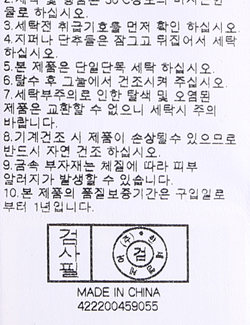 물로 하십시오.
3.세탁전 취급기호를 먼저 확인 하십시오.
4.지퍼나 단추들은 잠그고 뒤집어서 세탁
하십시오.
5.본 제품은 단일단독 세탁 하십시오.
6.탈수 후 그늘에서 건조시켜 주십시오.
7.세탁부주의로 인한 탈색 및 오염된
제품은 교환할 수 없으니 세탁시 주의
바랍니다.
8.기계건조 시 제품이 손상될수 있으므로
반드시 자연 건조 하십시오.
9.금속 부자재는 체질에 따라 피부
알러지가 발생할 수 있습니다.
10.본 제품의 품질보증기간은 구입일로
부터 1년입니다.
검사필
검
MADE IN CHINA
422200459055